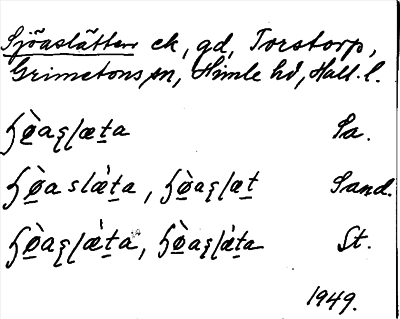 Sjöaslätten ek, gd, Torstorp,
Grimetons sn, Himle hd, Hall. l.
ɧø̠̀aʂlæt̠a Sa.
ɧø̠̀a slæ̀t̠a, ɧø̠̀aʂlæt̠ Sand.
ɧø̠̀aʂlæ̀t̠a, ɧø̠̀aʂlæ̀t̠a St.
1949.